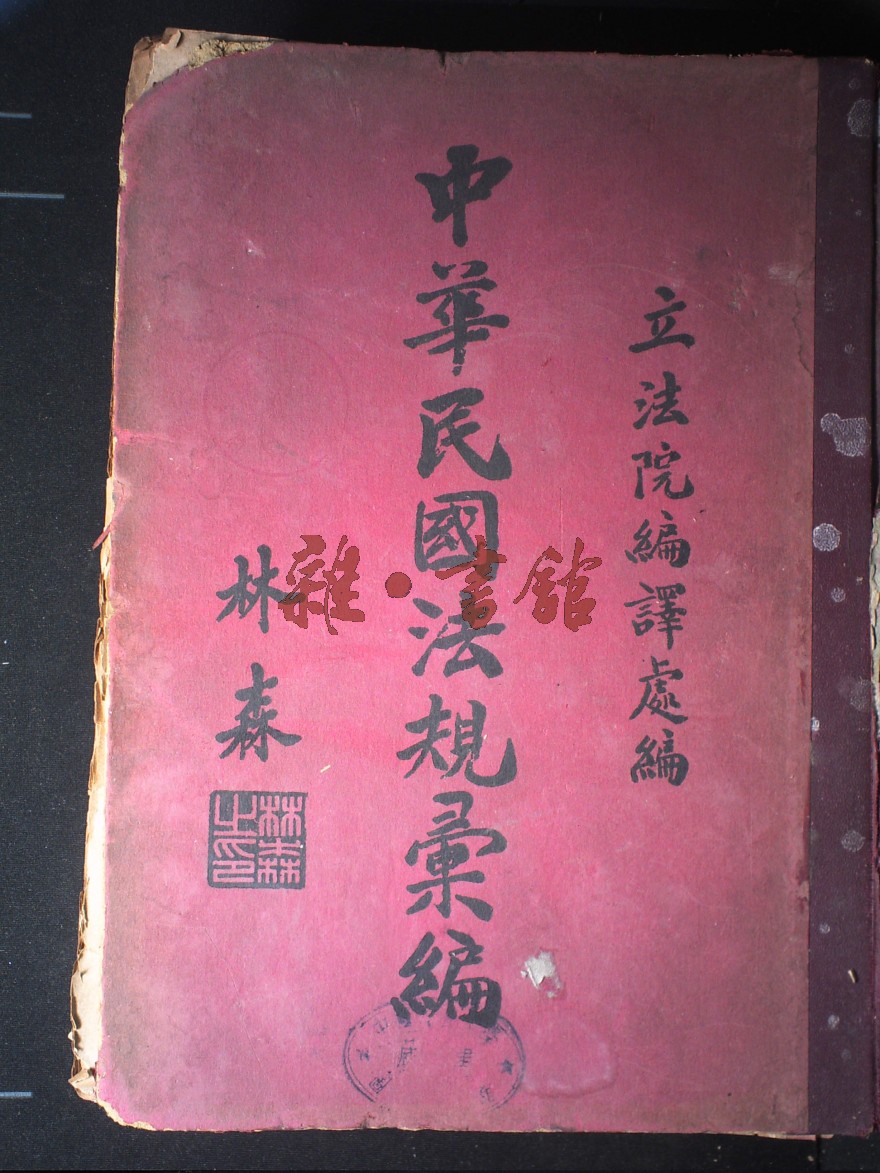 立法院編譯處編
中華民國法規彙編
林森
林森之印
雜·書館